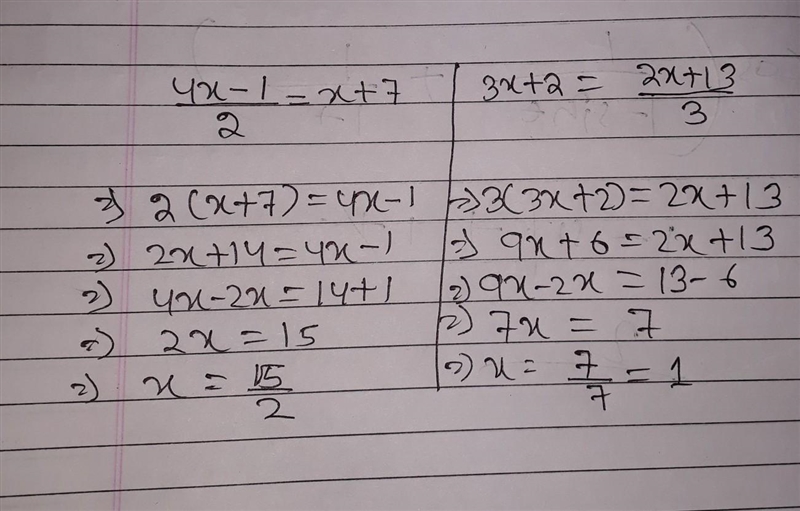 4x-1/2 = x+7
⇒ 2(x+7) = 4x-1
⇒ 2x+14 = 4x-1
⇒ 4x-2x = 14+1
⇒ 2x = 15
⇒ x = 15/2
3x+2 = 2x+13/3
⇒ 3(3x+2) = 2x+13
⇒ 9x+6 = 2x+13
⇒ 9x-2x = 13-6
⇒ 7x = 7
⇒ x = 7/7 = 1